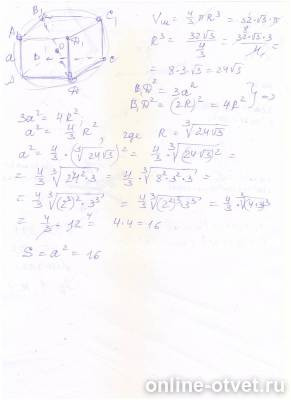 B₁ C₁
A₁ D₁
a B C
A D
Vш = 4/3 πR³ = 32·√3·π
R³ = 32√3 / (4/3) = 32·√3·3 / 4 =
= 8·3·√3 = 24√3
B₁D² = 3a²
B₁D² = (2R)² = 4R² } =>
3a² = 4R²
a² = 4/3 R², где R = ∛(24√3)
a² = 4/3 · (∛(24√3))² = 4/3 · ∛((24√3)²) =
= 4/3 ∛(24²·3) = 4/3 · ∛(8²·3²·3) =
= 4/3 ∛((2³)²·3³) = 4/3 ∛((2²)³·3³) = 4/3 · ∛((4·3)³)
= 4/3 · 12 = 4·4 = 16
S = a² = 16
online-otvet.ru